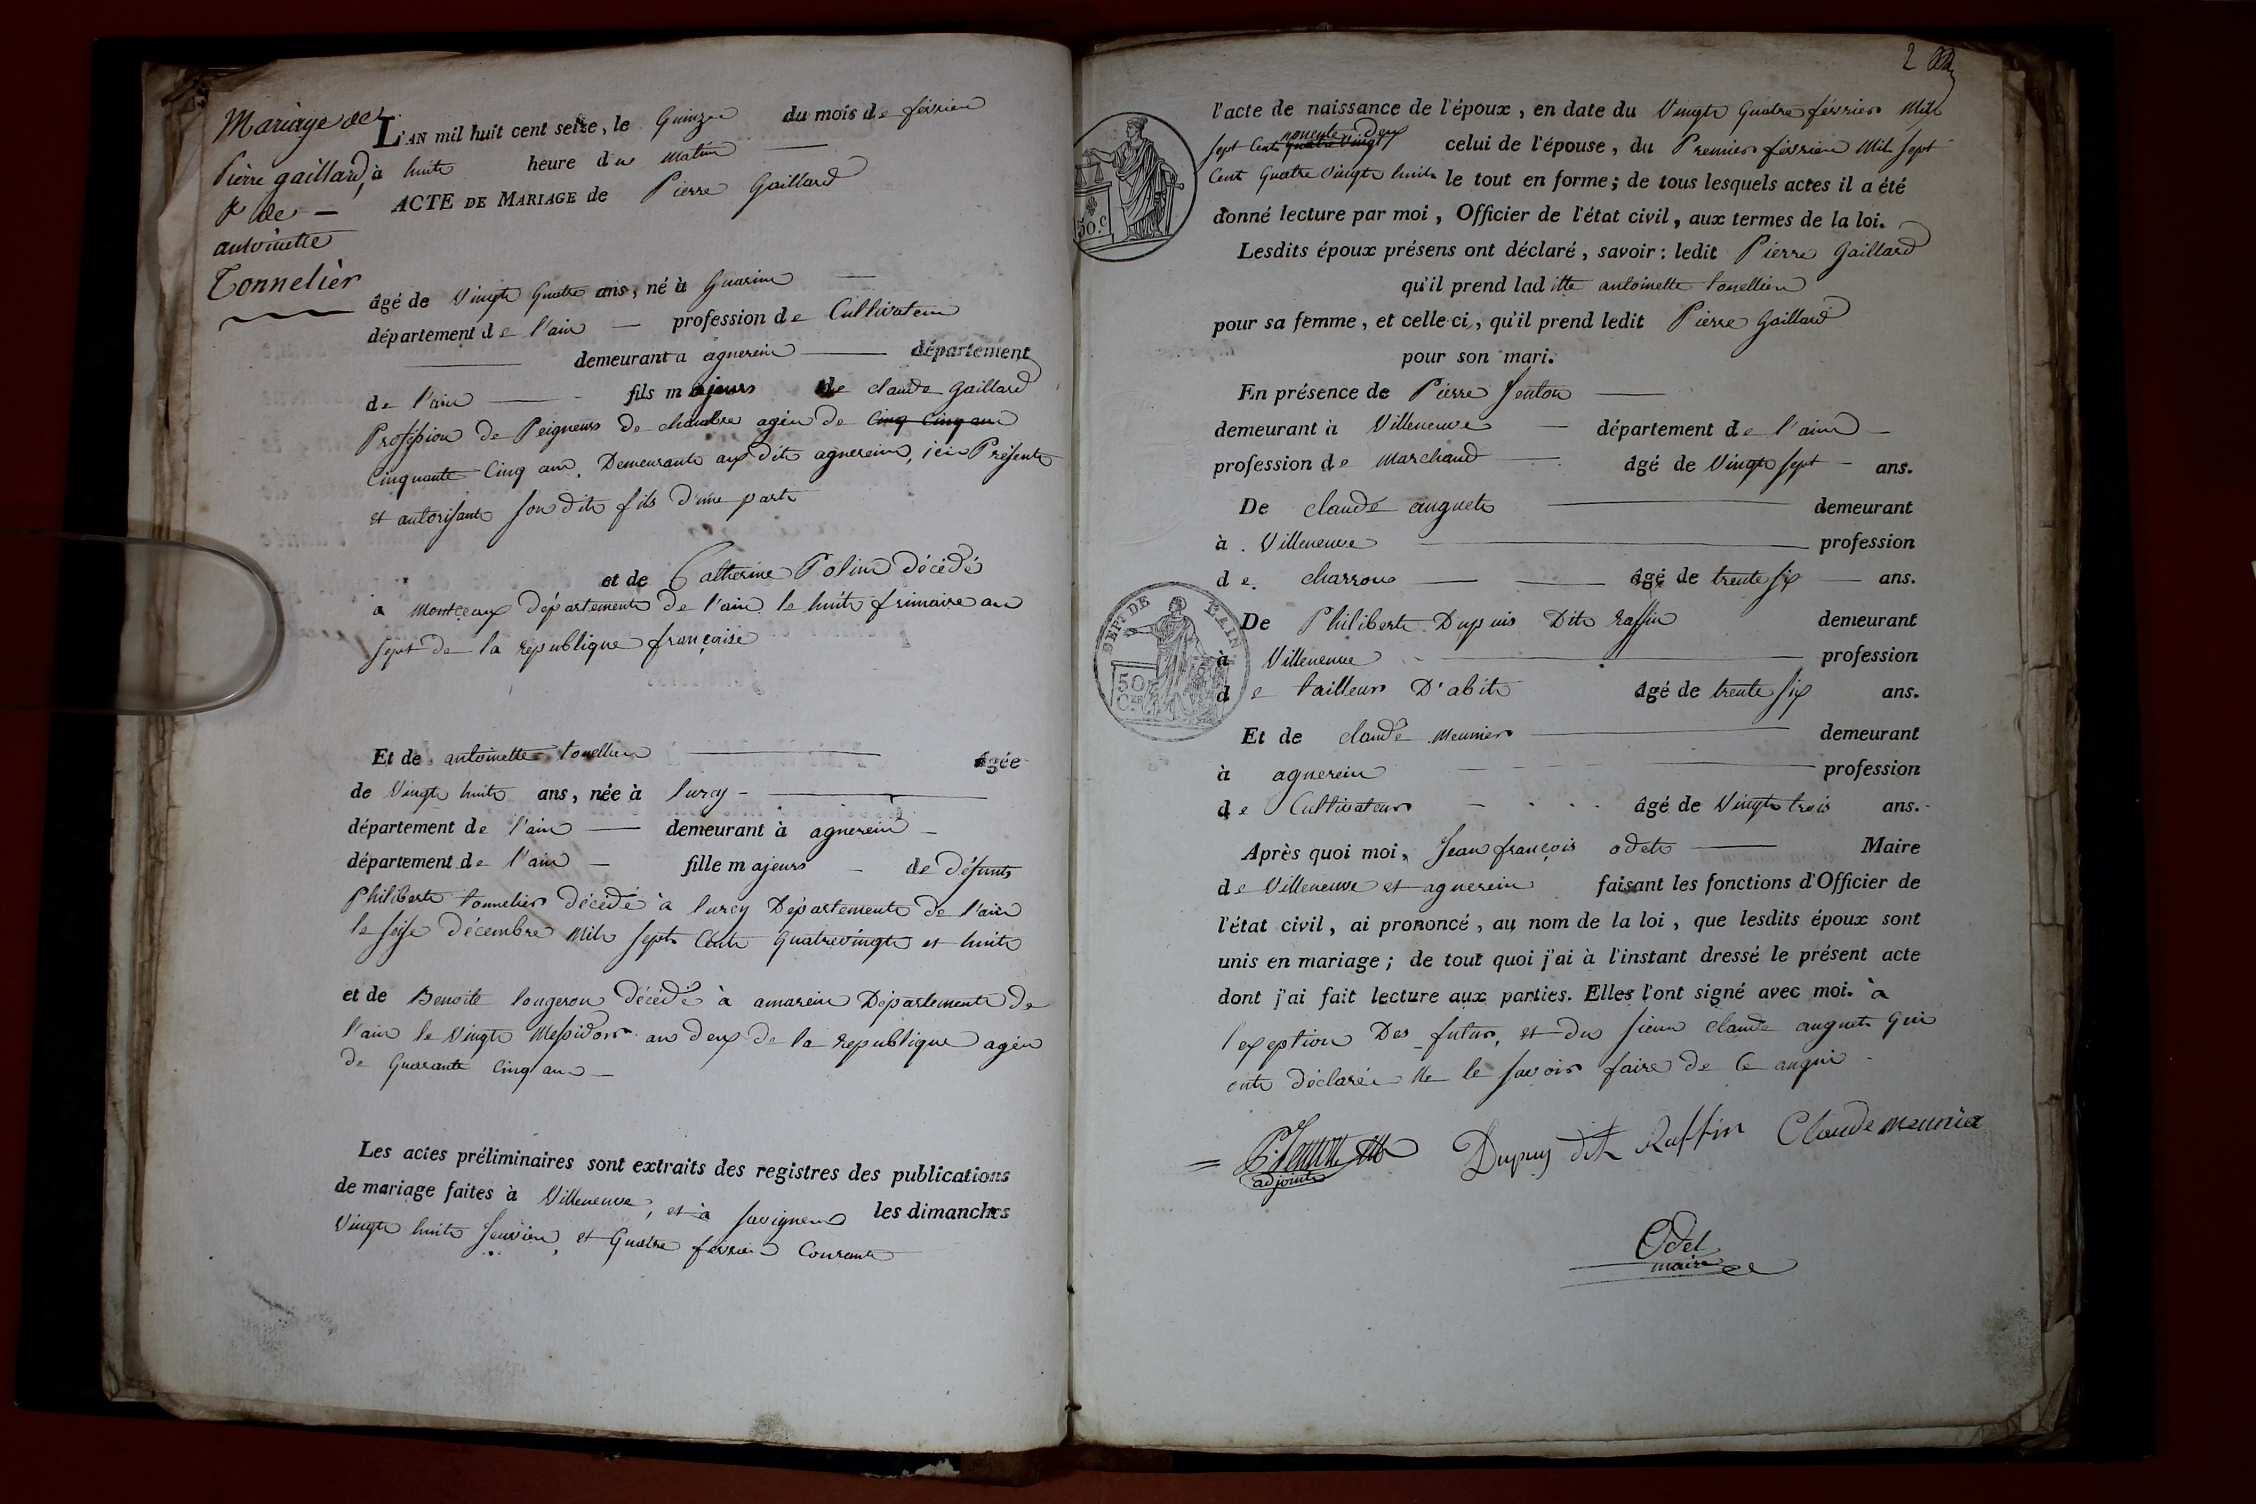 Mariage de
Pierre gaillard,
& de —
antoinette
Tonnelier
L'AN mil huit cent seize, le Quinze du mois de février
à huit heure du matin
ACTE DE MARIAGE de Pierre Gaillard
âgé de Vingt Quatre ans, né à Guerins
département de l'ain — profession de Cultivateur
demeurant a agnerein département
de l'ain fils majeur de claude Gaillard
Profession de Peigneur de chanvre agée de cinq cinq ans
Cinquante Cinq ans, Demeurant aux dit agnerein, ici Présent
et autorisant son dit fils d'une part
et de Catherine Polin décédé
a montceaux département de l'ain le huit frimaire an
sept de la république française
Et de antoinette tonellier âgée
de Vingt huit ans, née à lurcy
département de l'ain — demeurant à agnerein
département de l'ain fille majeure de défunt
Philibert tonnelier décédé à lurcy Département de l'ain
le seise décembre mil sept Cent Quatrevingt et huit
et de Benoite longeron décédé à amarein Département de
l'ain le Vingt Messidor an deux de la république agée
de Quarante Cinq ans
Les actes préliminaires sont extraits des registres des publications
de mariage faites à Villeneuve, et à savigneux les dimanches
Vingt huit Janvier, et Quatre février Courant
2
l'acte de naissance de l'époux, en date du Vingt Quatre février Mil
nonente deux
sept Cent quatre vingt celui de l'épouse, du Premier février Mil sept
Cent Quatre Vingt huit le tout en forme; de tous lesquels actes il a été
donné lecture par moi, Officier de l'état civil, aux termes de la loi.
50.C
Lesdits époux présens ont déclaré, savoir: ledit Pierre Gaillard
qu'il prend laditte antoinette tonellier
pour sa femme, et celle-ci, qu'il prend ledit Pierre Gaillard
pour son mari.
En présence de Pierre Jenton
demeurant à Villeneuve — département de l'ain —
profession de Marchand âgé de Vingt sept — ans.
De claude auguet demeurant
à Villeneuve profession
de charron âgé de trente six ans.
De Philibert Dupuis Dit raffin demeurant
à Villeneuve profession
de tailleur D'abit âgé de trente six ans.
SEPT DE L'AIN
50
Et de claude Meunier demeurant
à agnerein profession
de Cultivateur âgé de Vingt trois ans.
Après quoi moi, Jean françois odet Maire
de Villeneuve et agnerein faisant les fonctions d'Officier de
l'état civil, ai prononcé, au nom de la loi, que lesdits époux sont
unis en mariage; de tout quoi j'ai à l'instant dressé le présent acte
dont j'ai fait lecture aux parties. Elles l'ont signé avec moi. à
l'exeption Des futur, et du sieur claude auguet Qui
ont déclarée ne le savoir faire de ce anquie
P. Jenton Dupuy dit Ruffin Claude meunier
adjoint
Odet
maire